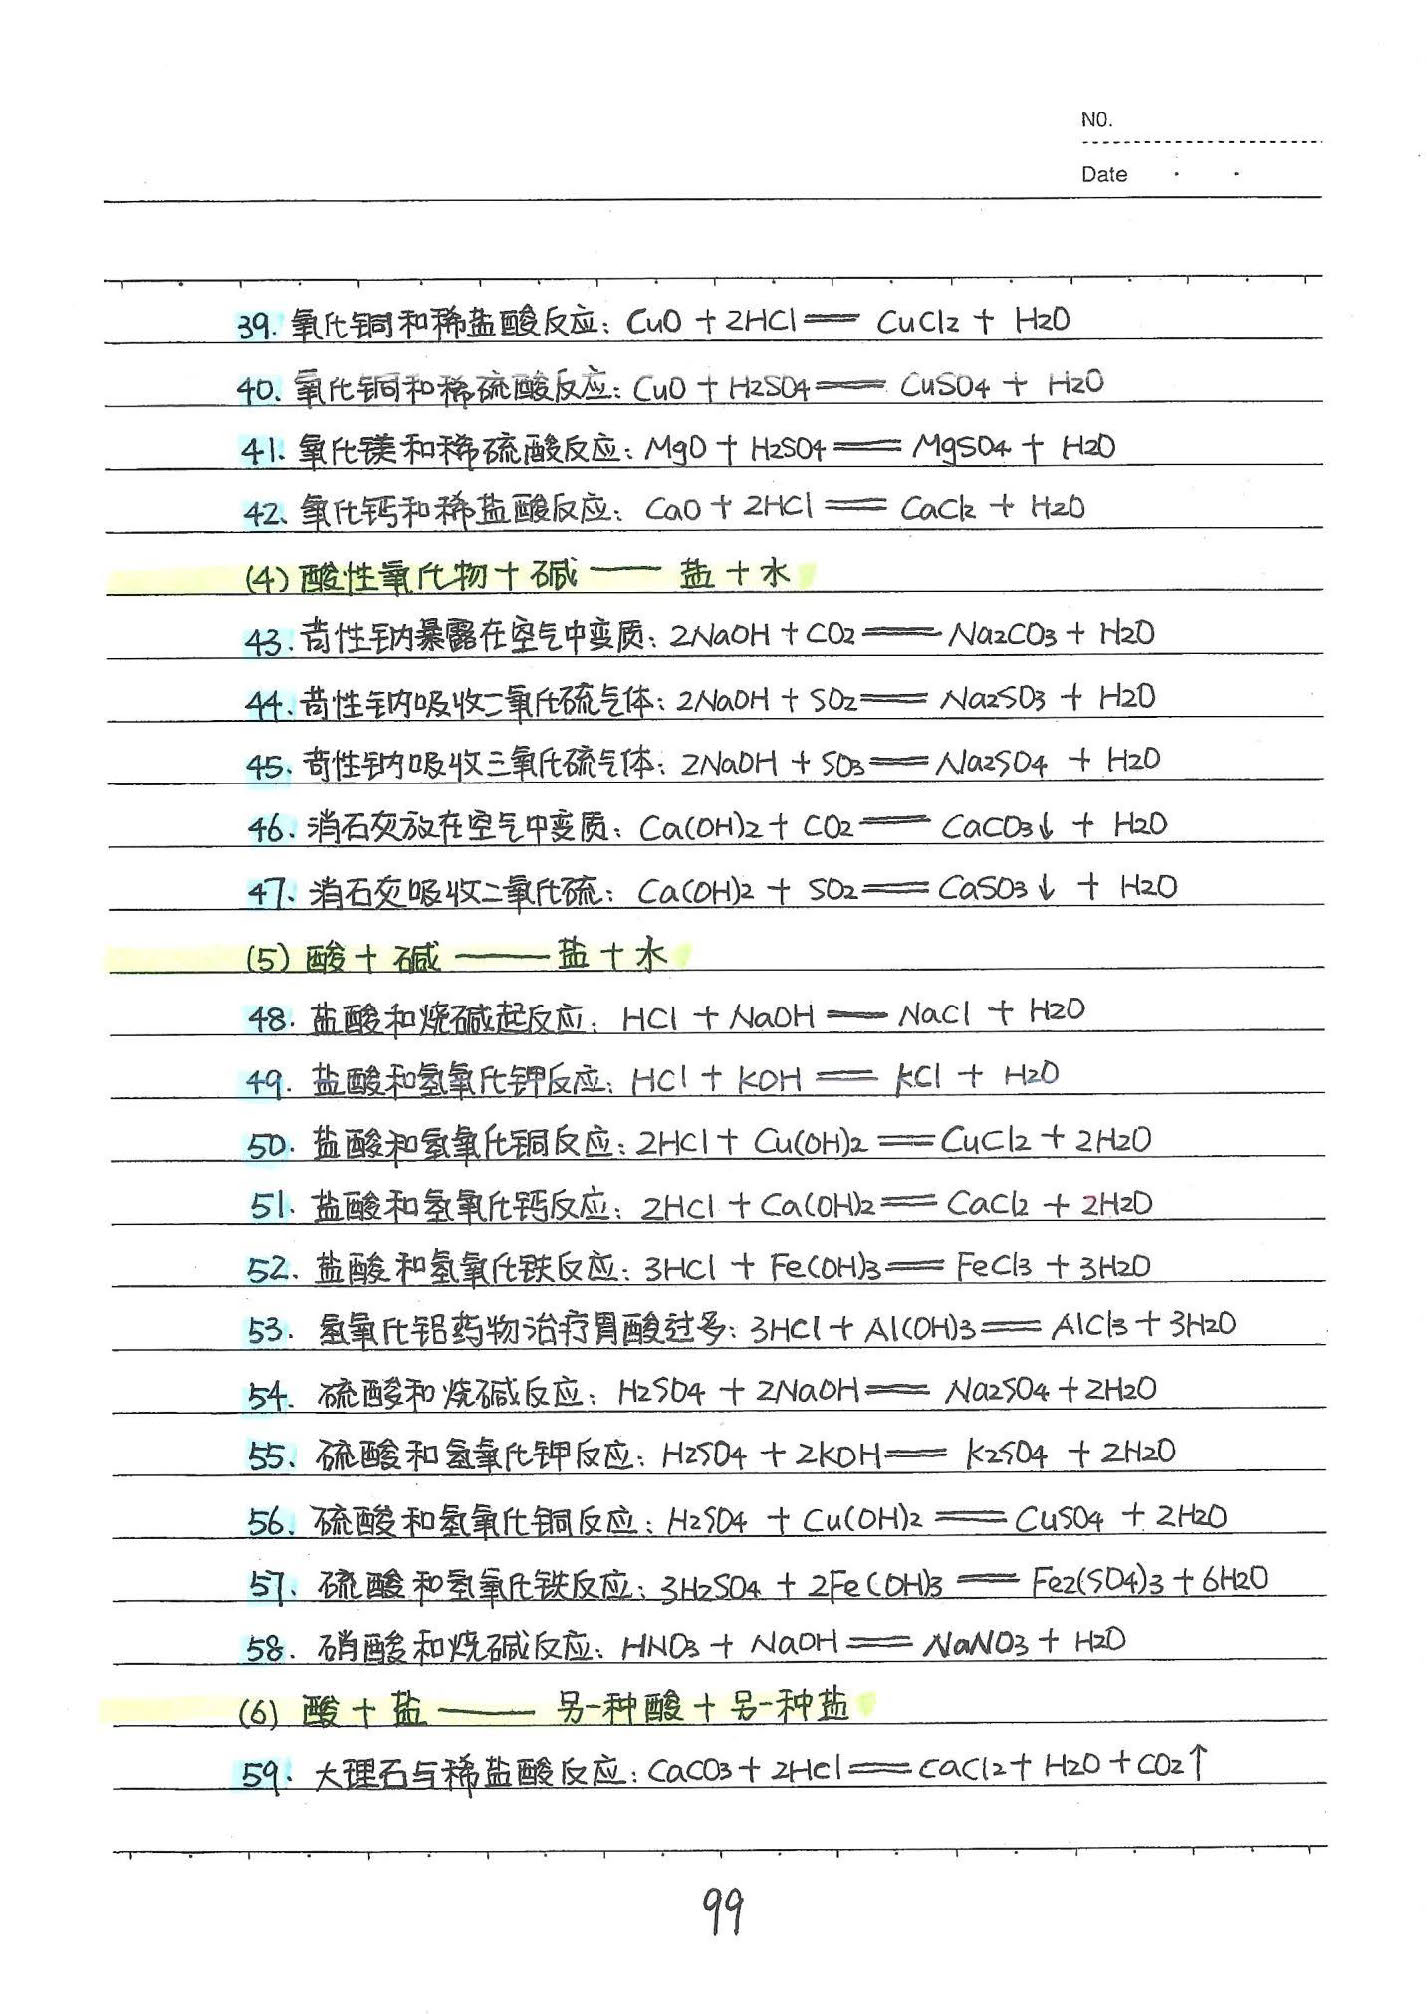 NO.
Date
39. 氧化铜和稀盐酸反应: CuO + 2HCl══ CuCl2 + H2O
40. 氧化铜和稀硫酸反应: CuO + H2SO4══ CuSO4 + H2O
41. 氧化镁和稀硫酸反应: MgO + H2SO4══ MgSO4 + H2O
42. 氧化钙和稀盐酸反应: CaO + 2HCl══ CaCl2 + H2O
(4) 酸性氧化物+碱 —— 盐+水
43. 苛性钠暴露在空气中变质: 2NaOH + CO2══ Na2CO3 + H2O
44. 苛性钠吸收二氧化硫气体: 2NaOH + SO2══ Na2SO3 + H2O
45. 苛性钠吸收三氧化硫气体: 2NaOH + SO3══ Na2SO4 + H2O
46. 消石灰放在空气中变质: Ca(OH)2 + CO2══ CaCO3↓ + H2O
47. 消石灰吸收二氧化硫: Ca(OH)2 + SO2══ CaSO3↓ + H2O
(5) 酸+碱 —— 盐+水
48. 盐酸和烧碱起反应: HCl + NaOH══ NaCl + H2O
49. 盐酸和氢氧化钾反应: HCl + KOH══ KCl + H2O
50. 盐酸和氢氧化铜反应: 2HCl + Cu(OH)2══ CuCl2 + 2H2O
51. 盐酸和氢氧化钙反应: 2HCl + Ca(OH)2══ CaCl2 + 2H2O
52. 盐酸和氢氧化铁反应: 3HCl + Fe(OH)3══ FeCl3 + 3H2O
53. 氢氧化铝药物治疗胃酸过多: 3HCl + Al(OH)3══ AlCl3 + 3H2O
54. 硫酸和烧碱反应: H2SO4 + 2NaOH══ Na2SO4 + 2H2O
55. 硫酸和氢氧化钾反应: H2SO4 + 2KOH══ K2SO4 + 2H2O
56. 硫酸和氢氧化铜反应: H2SO4 + Cu(OH)2══ CuSO4 + 2H2O
57. 硫酸和氢氧化铁反应: 3H2SO4 + 2Fe(OH)3══ Fe2(SO4)3 + 6H2O
58. 硝酸和烧碱反应: HNO3 + NaOH══ NaNO3 + H2O
(6) 酸+盐 —— 另一种酸+另一种盐
59. 大理石与稀盐酸反应: CaCO3 + 2HCl══ CaCl2 + H2O + CO2↑
99